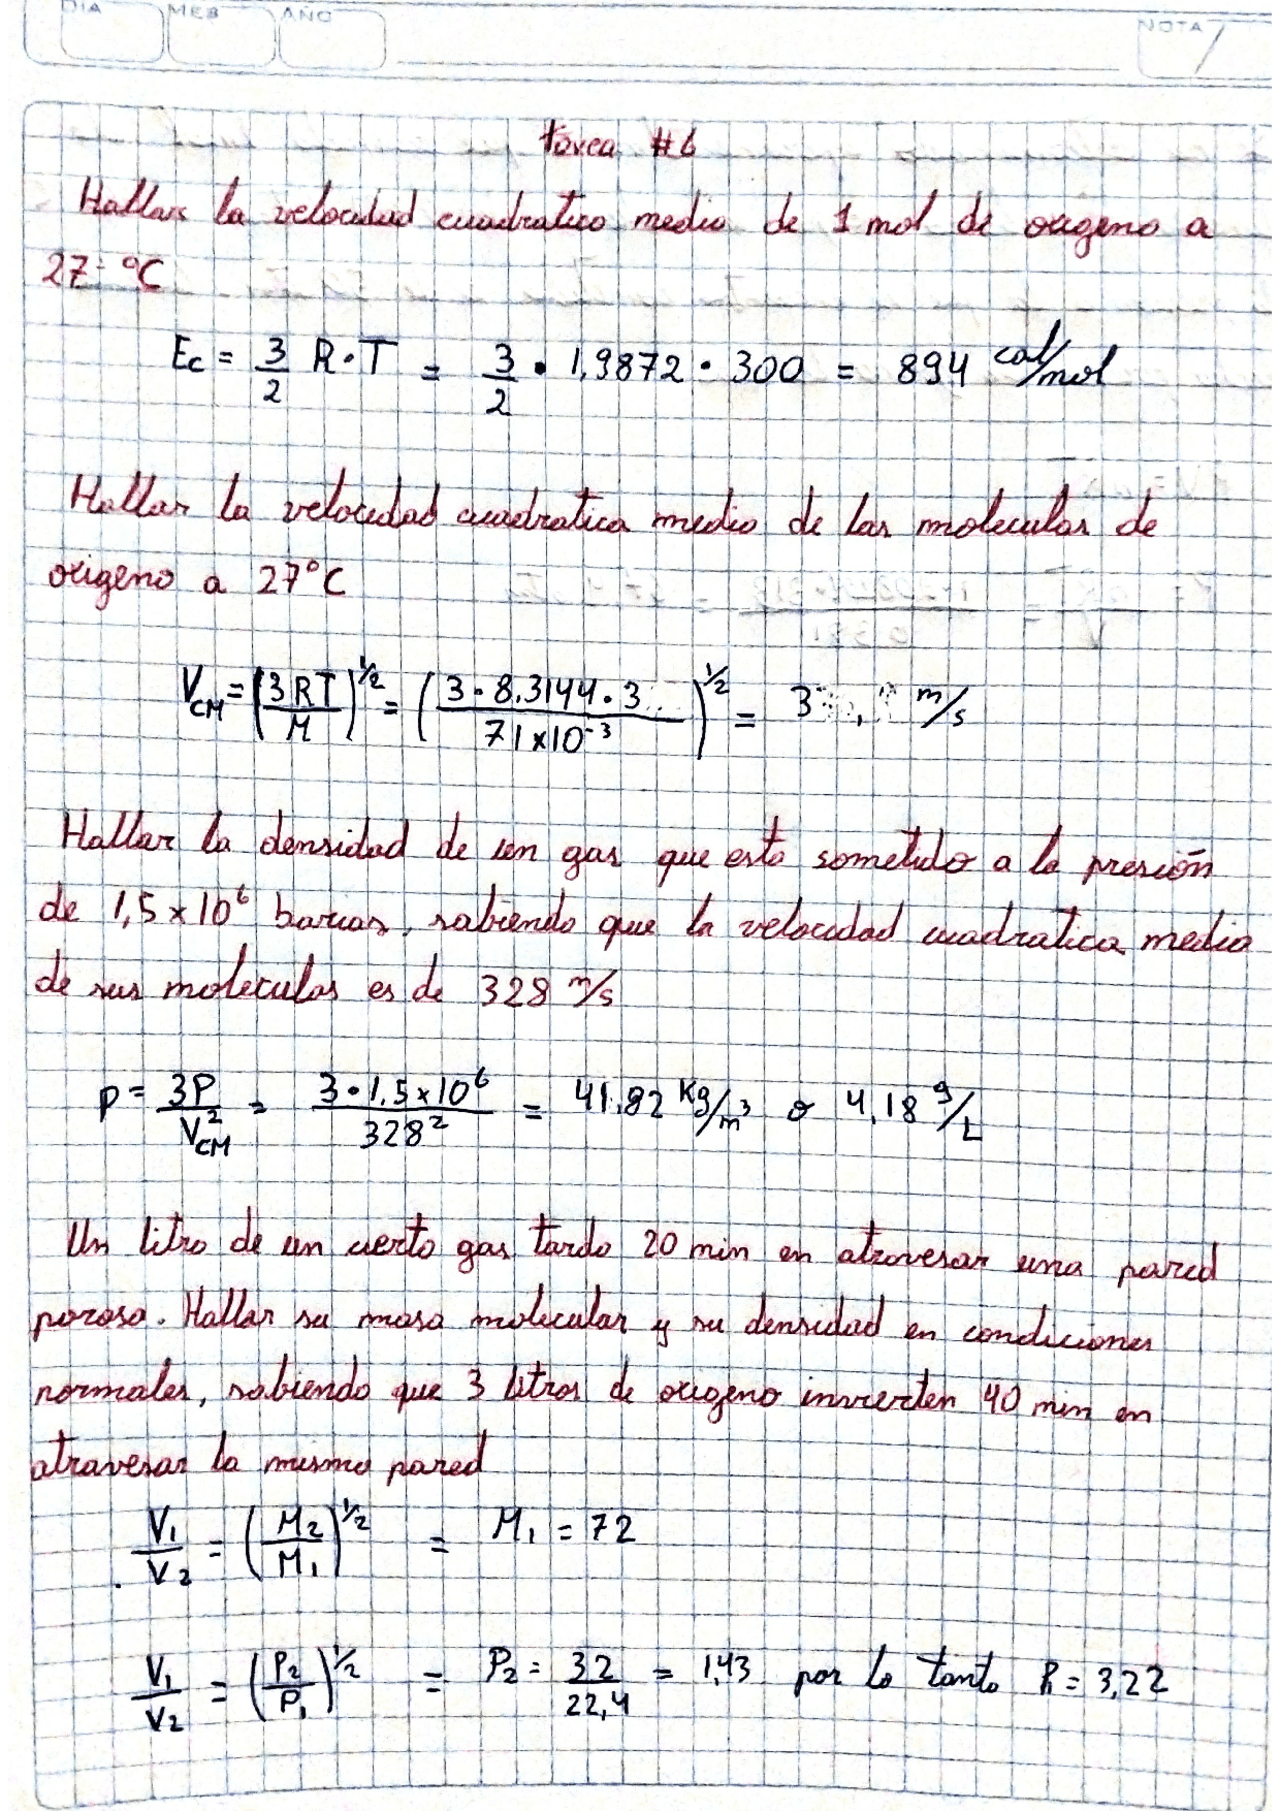 DIA MES AÑO NOTA
tarea #6
Hallar la velocidad cuadratico medio de 1 mol de oxigeno a
27 °C
Ec = 3/2 R·T = 3/2 · 1,9872 · 300 = 894 cal/mol
Hallar la velocidad cuadratica medio de las moleculas de
oxigeno a 27°C
V_CM = (3RT/M)^1/2 = (3·8.3144·3 / 71×10^-3)^1/2 = 3 m/s
Hallar la densidad de un gas que esta sometido a la presión
de 1,5×10^6 barias, sabiendo que la velocidad cuadratica media
de sus moleculas es de 328 m/s
P = 3P/V_CM^2 = 3·1.5×10^6/328^2 = 41.82 Kg/m^3 o 4,18 g/L
Un litro de un cierto gas tardo 20 min en atravesar una pared
porosa. Hallar su masa molecular y su densidad en condiciones
normales, sabiendo que 3 litros de oxigeno invierten 40 min en
atravesar la misma pared
V1/V2 = (M2/M1)^1/2 = M1 = 72
V1/V2 = (P2/P1)^1/2 = P2 = 32/22,4 = 1,43 por lo tanto P1 = 3,22